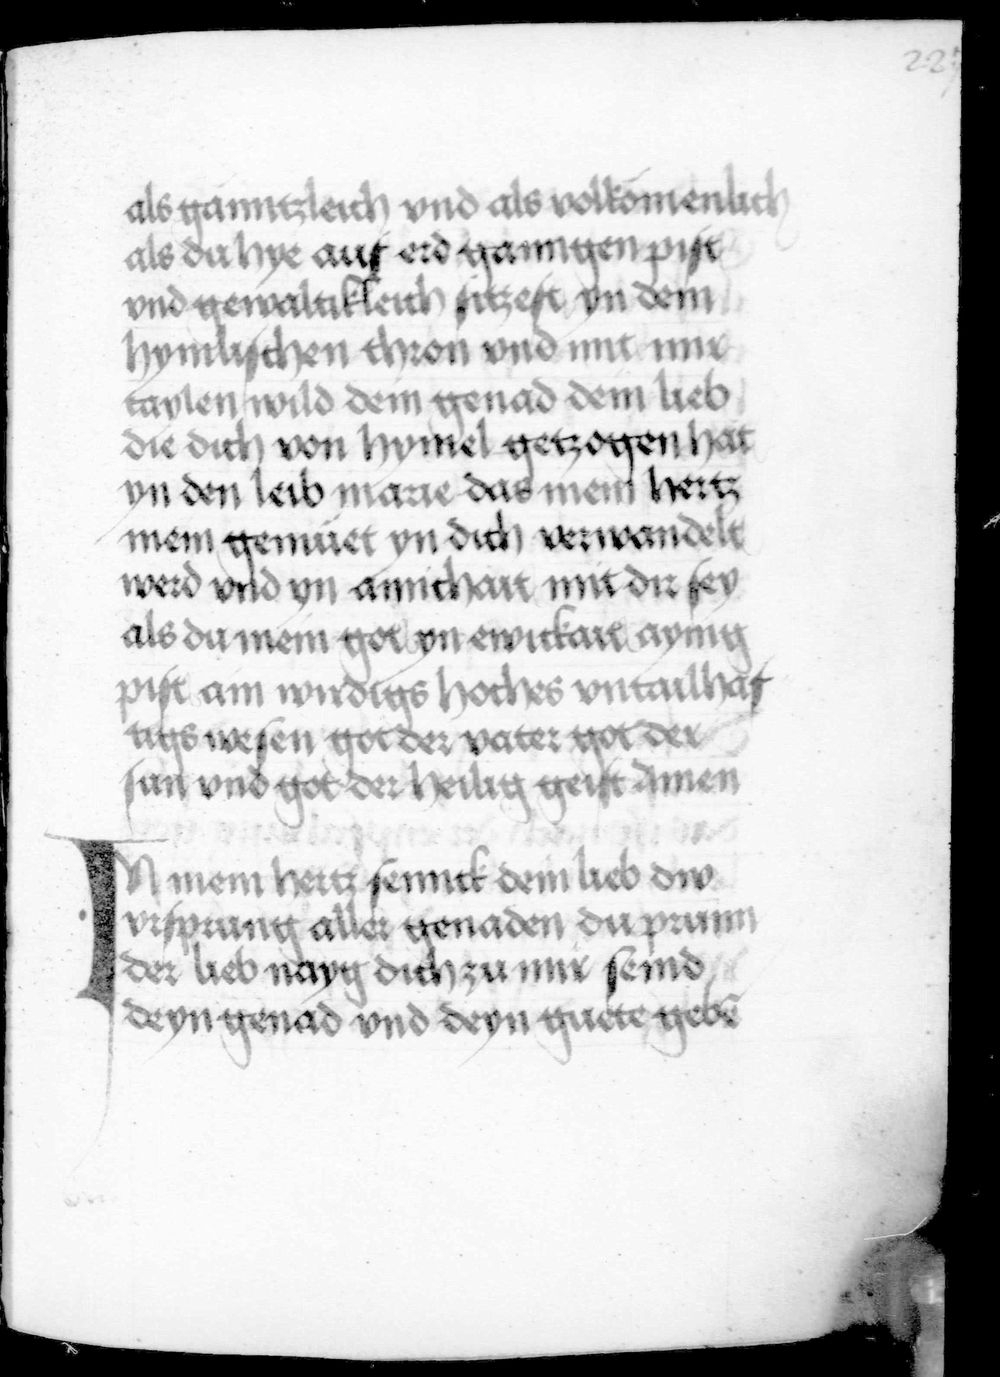 als ganntzleich vnd als volkömenlich
als du hye auf erd ganngen pist
vnd gewaltikleich sitzest yn dem
hymlischen thron vnd mit mir
taylen wild dein genad dein lieb
die dich von hymel getzogen hat
yn den leib marie das mein hertz
mein gemüet yn dich verwandelt
werd vnd yn ainichait mit dir sey
als du mein got yn ewickait aynig
pist ain wirdigs hoches vntailhaf
tigs wesen got der vater got der
sun vnd got der heilig geist Amen
IN mein hertz sennck dein lieb dw
vrsprung aller genaden du prunn
der lieb nayg dich zu mir seind
deyn genad vnd deyn guete gebē